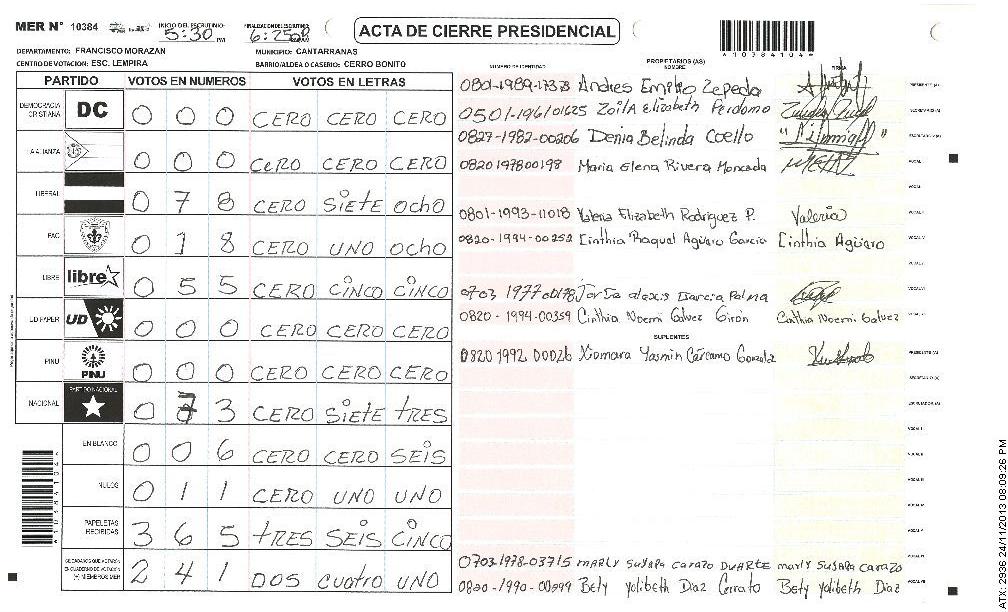 MER N° 10384 INICIO DEL ESCRUTINIO 5:30 PM FINALIZACION DEL ESCRUTINIO 6:25 ACTA DE CIERRE PRESIDENCIAL
*10384104*
DEPARTAMENTO: FRANCISCO MORAZAN MUNICIPIO: CANTARRANAS
CENTRO DE VOTACION: ESC. LEMPIRA BARRIO/ALDEA O CASERIO: CERRO BONITO
PARTIDO VOTOS EN NUMEROS VOTOS EN LETRAS
DEMOCRACIA CRISTIANA DC 0 0 0 CERO CERO CERO
LA ALIANZA 0 0 0 CERO CERO CERO
LIBERAL 0 7 8 CERO SIETE OCHO
PAC 0 1 8 CERO UNO OCHO
LIBRE libre 0 5 5 CERO CINCO CINCO
UD FAPER UD 0 0 0 CERO CERO CERO
PINU PINU 0 0 0 CERO CERO CERO
NACIONAL PARTIDO NACIONAL 0 7 3 CERO SIETE TRES
EN BLANCO 0 0 6 CERO CERO SEIS
NULOS 0 1 1 CERO UNO UNO
PAPELETAS RECIBIDAS 3 6 5 TRES SEIS CINCO
CIUDADANOS QUE VOTARON EN CUADERNO DE VOTACION (+) MIEMBROS MER 2 4 1 DOS CUATRO UNO
NUMERO DE IDENTIDAD PROPIETARIOS (AS) NOMBRE FIRMA
0801-1989-17373 Andres Emilio Zepeda PRESIDENTE (A)
0501-1961-01625 Zoila Elizabeth Perdomo SECRETARIO (A)
0827-1982-00206 Denia Belinda Coello ESCRUTADOR (A)
0820197800198 Maria Elena Rivera Moncada VOCAL I
0801-1993-11018 Valeria Elizabeth Rodriguez P. Valeria
0820-1994-00252 Cinthia Raquel Agüero Garcia Cinthia Agüero
0703 1977 Jorge alexis Garcia Palma
0820-1994-00359 Cinthia Noemi Galvez Girón Cinthia Noemi Galvez
SUPLENTES
0820 1992 00026 Xiomara Yasmin Cárcamo Gonzalez PRESIDENTE (A)
SECRETARIO (A)
ESCRUTADOR (A)
0703-1978-03715 MARLY SUYAPA CARAZO DUARTE MARLY SUYAPA CARAZO
0800-1990-00999 Bety Yolibeth Diaz Cerrato Bety Yolibeth Diaz
ATX: 2936 24/11/2013 08:09:26 PM